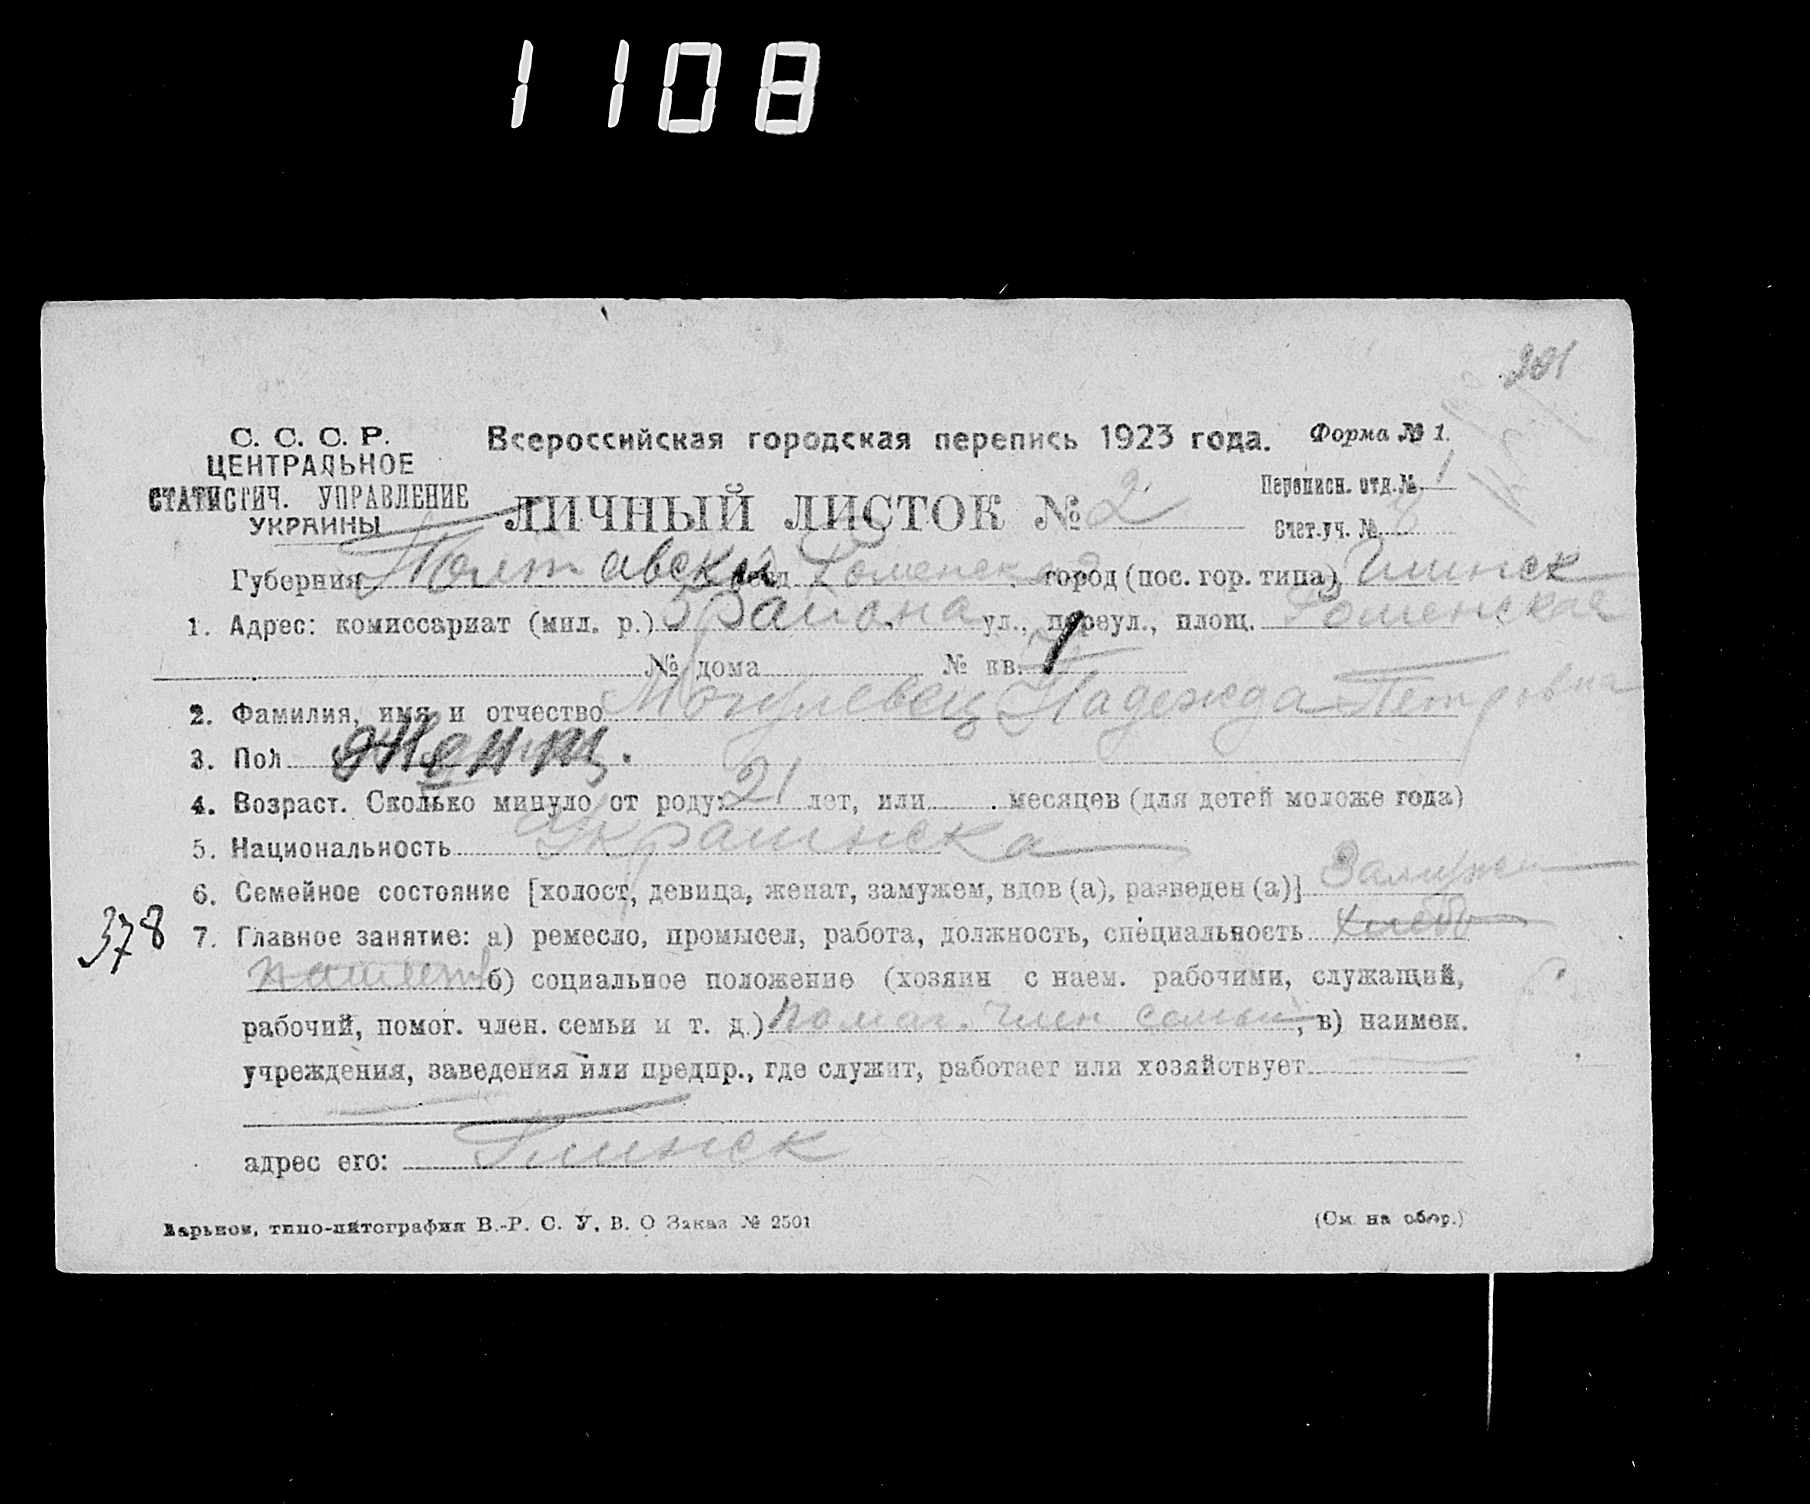 1108
201
С. С. С. Р.
ЦЕНТРАЛЬНОЕ
СТАТИСТИЧ. УПРАВЛЕНИЕ
УКРАИНЫ
Всероссийская городская перепись 1923 года.
Форма № 1.
ЛИЧНЫЙ ЛИСТОК № 2
Переписн. отд. № 1
Счет. уч. №
Губерния Полтавска уезд Роменская город (пос. гор. типа) Глинск
1. Адрес: комиссариат (мил. р.) района ул., переул., площ. Роменская
№ дома № кв. 1
2. Фамилия, имя и отчество Могулевец Надежда Петровна
3. Пол Женщ.
4. Возраст. Сколько минуло от роду: 21 лет, или месяцев (для детей моложе года)
5. Национальность Украинска
6. Семейное состояние [холост, девица, женат, замужем, вдов (а), разведен (а)] Замужем
378
7. Главное занятие: а) ремесло, промысел, работа, должность, специальность хлебо
пашество б) социальное положение (хозяин с наем. рабочими, служащий,
рабочий, помог. член. семьи и т. д.) помог. член семьи, в) наимен.
учреждения, заведения или предпр., где служит, работает или хозяйствует
адрес его: Глинск
Харьков, типо-литография В.-Р. С. У. В. О Заказ № 2501
(См. на обор.)